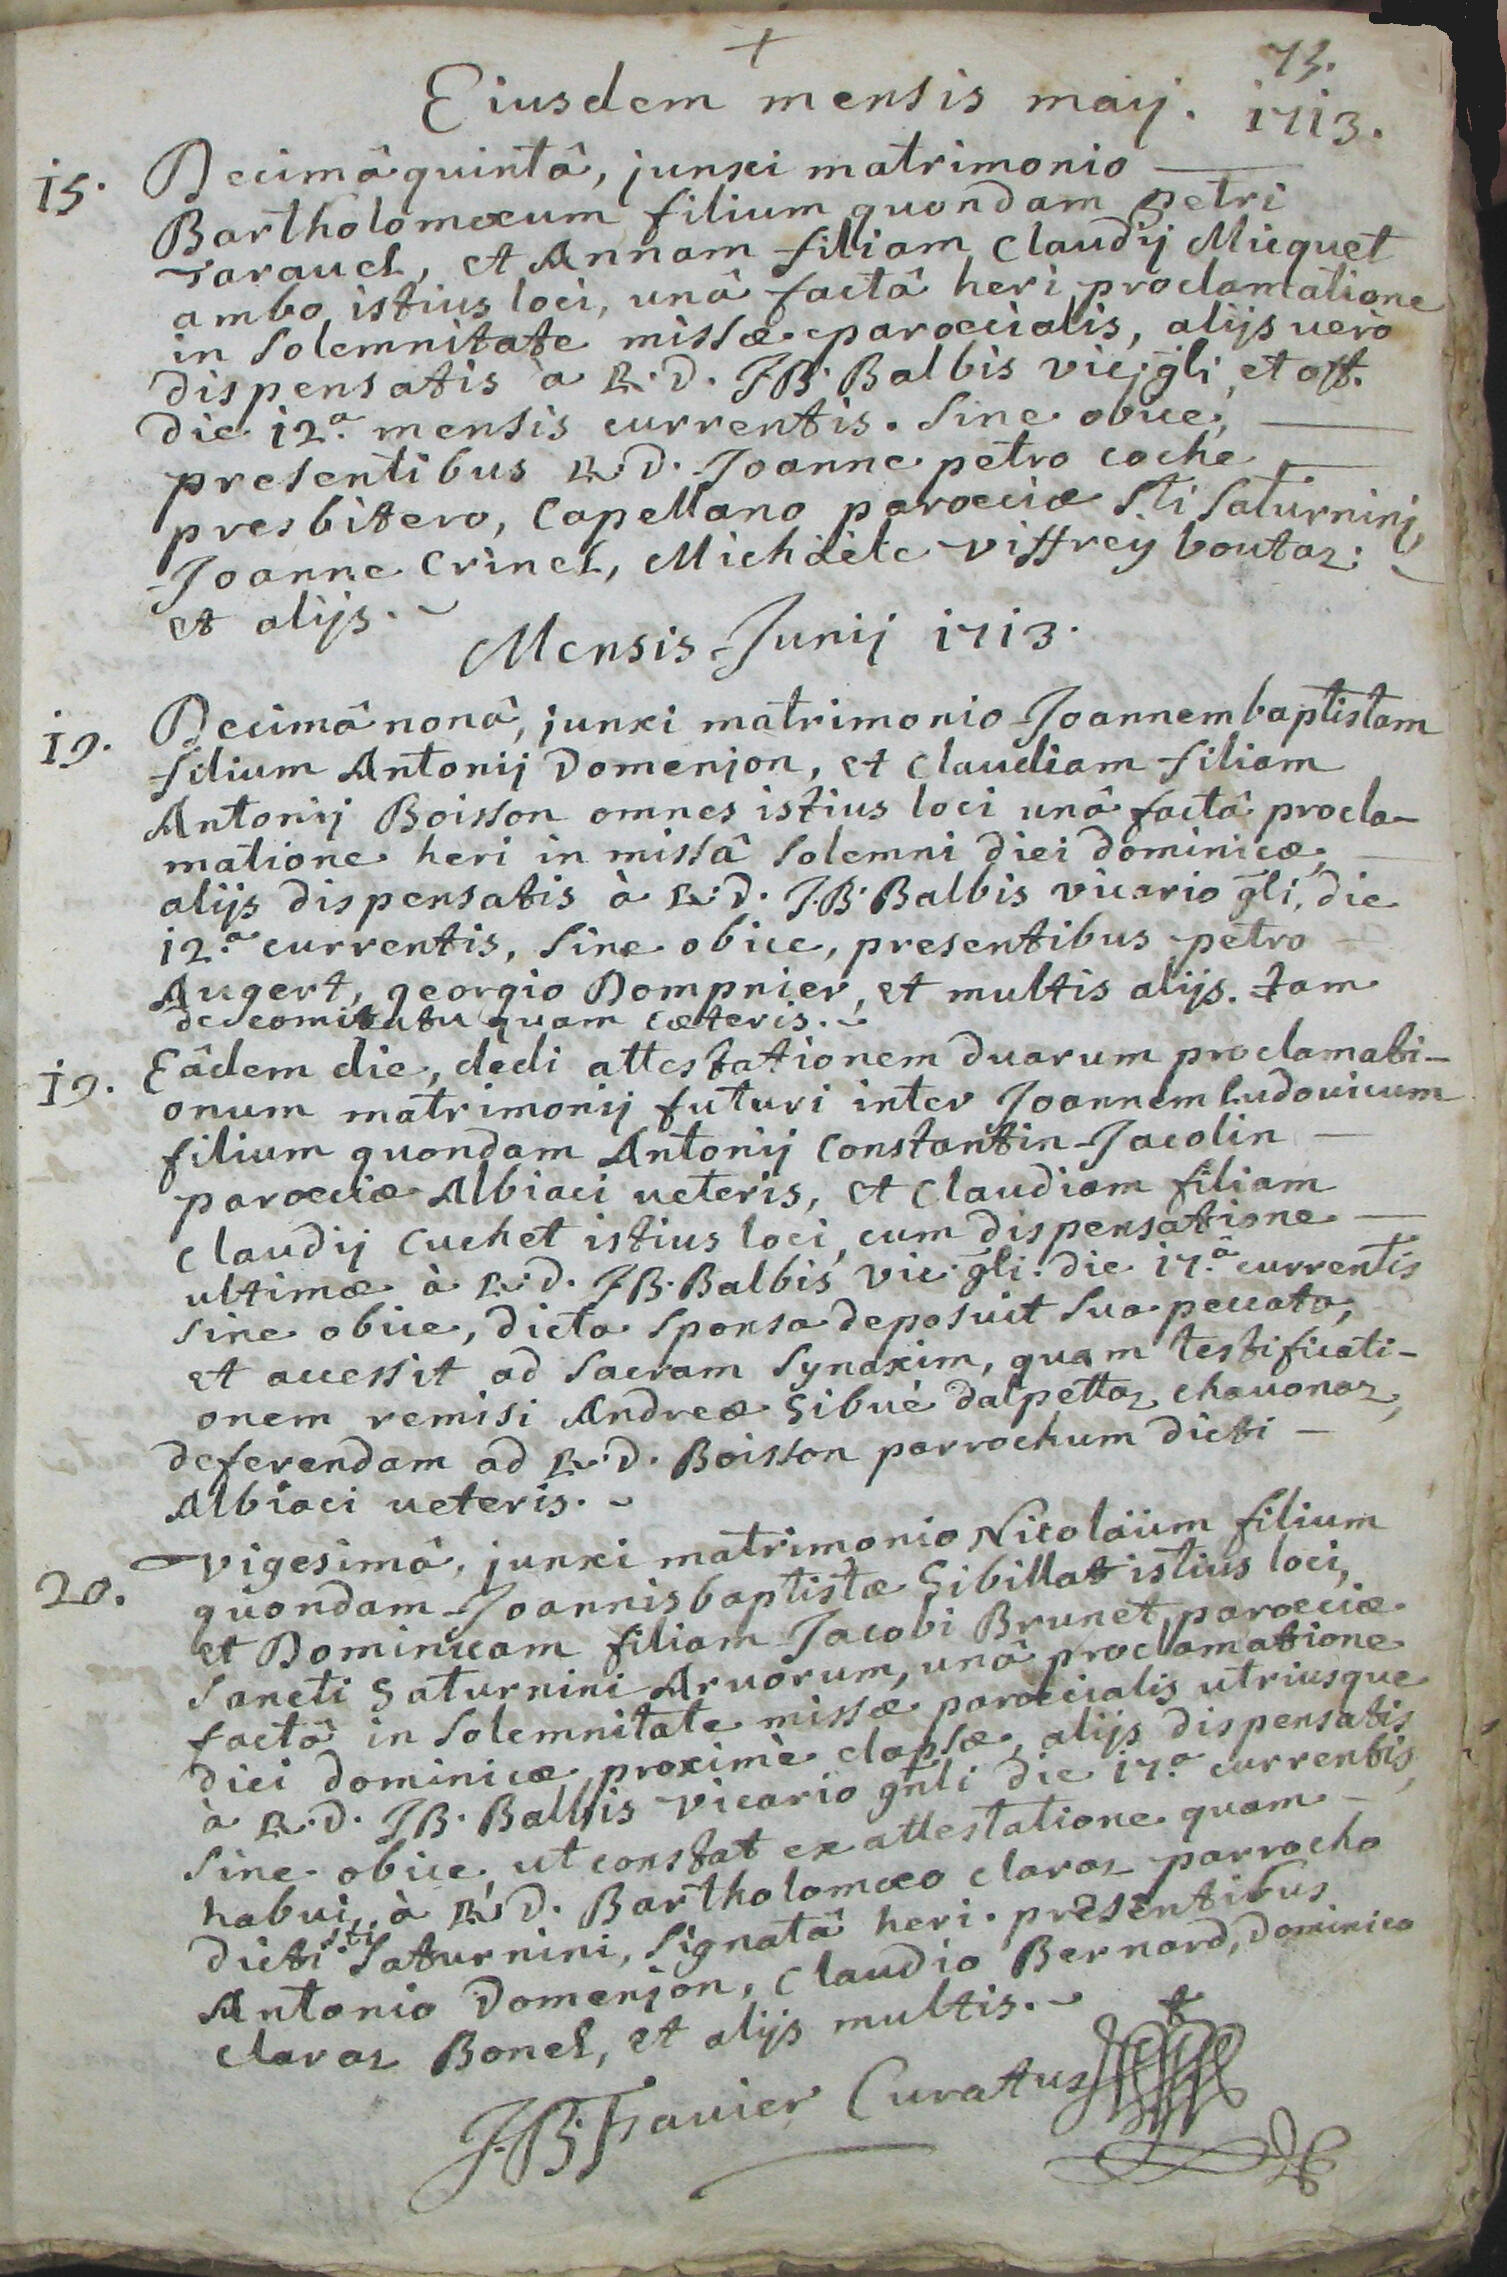 +
73.
Eiusdem mensis maij. 1713.
15. Decimâ quintâ, junxi matrimonio
Bartholomæum filium quondam petri
rarauel, et Annam filiam Claudij Micquet
ambo istius loci, unâ factâ heri proclamatione
in solemnitate missæ paroccialis, alijs uerò
dispensatis à R.D. J.B. Balbis vic; gli, et off.
die 12.a mensis currentis. sine obice,
presentibus R.D. Joanne petro coche
presbitero, Capellano parocciæ Sti Saturninj,
Joanne Crinel, Michaële viffrey boutaz.
et alijs.
Mensis Junij 1713.
19. Decimâ nonâ, junxi matrimonio Joannem baptistam
filium Antonij Domenjon, et Claudiam filiam
Antonij Boisson omnes istius loci unâ factâ procla-
matione heri in missâ solemni diei dominicæ,
alijs dispensatis à R.D. J.B. Balbis vicario gli, die
12.a currentis, sine obice, presentibus petro
Augert, georgio Dompnier, et multis alijs. tam
de comitatu quam cæteris.
19. Eâdem die, dedi attestationem duarum proclamati-
onum matrimonij futuri inter Joannem Ludouicum
filium quondam Antonij Constantin-Jacolin
parocciæ Albiaci ueteris, et Claudiam filiam
Claudij Cuchet istius loci, cum dispensatione
ultimæ à R.D. J.B. Balbis vic. gli. die 17.â currentis
sine obice, dicta sponsa deposuit sua peccata,
et accessit ad sacram synaxim, quam testificati-
onem remisi Andreæ Sibué dalpettaz chauonaz,
deferendam ad R.D. Boisson parrochum dicti
Albiaci ueteris.
20. vigesimâ, junxi matrimonio Nicolaüm filium
quondam Joannis baptistæ Sibillat istius loci,
et Dominicam filiam Jacobi Brunet, parocciæ
Sancti Saturnini Aruorum, unâ proclamatione
factâ in solemnitate missæ paroccialis utriusque
diei dominicæ proximè elapsæ, alijs dispensatis
à R.D. J.B. Balbis vicario gnli die 17.a currentis,
sine obice, ut constat ex attestatione quam
habui à R.D. Bartholomæo claraz parrocho
dicti Sti Saturnini, signatâ heri. presentibus
Antonio Domenjon, Claudio Bernard, Dominico
Claraz Bonel, et alijs multis.
J.B. Fauier Curatus